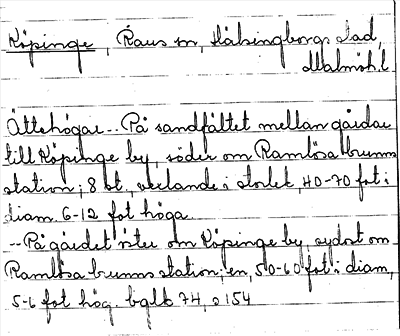 Köpinge, Raus sn, Hälsingborgs stad,
Malmöh.l.
Ättehögar.-- På sandfältet mellan gårdar
till Köpinge by, söder om Ramlösa brunns
station; 8 st., vexlande i storlek, 40-70 fot i
diam. 6-12 fot höga.
--På gärdet öster om Köpinge by, sydost om
Ramlösa brunns station; en, 50-60 fot i diam,
5-6 fot hög. bglb 74, s 154